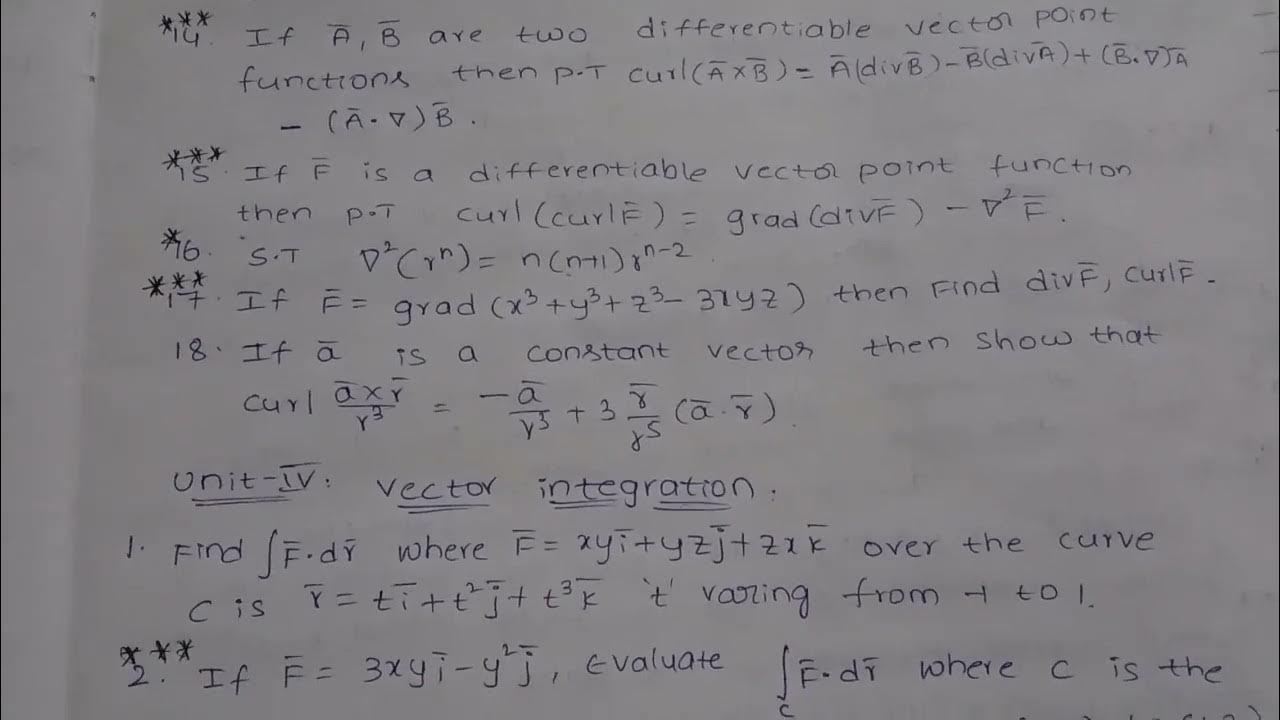 ***14. If Ā, B̄ are two differentiable vector point
functions then P.T curl(Ā×B̄) = Ā(div B̄) – B̄(div Ā) + (B̄.∇)Ā
– (Ā.∇)B̄.
***15. If F̄ is a differentiable vector point function
then P.T curl(curl F̄) = grad(div F̄) – ∇²F̄.
*16. S.T ∇²(rⁿ) = n(n+1)rⁿ⁻²
***17. If F̄ = grad(x³+y³+z³–3xyz) then Find div F̄, curl F̄.
18. If ā is a constant vector then show that
curl (ā×r̄)/r³ = –ā/r³ + 3 r̄/r⁵ (ā.r̄)
Unit-IV: Vector integration.
1. Find ∫F̄.dr̄ where F̄ = xyī+yzj̄+zxk̄ over the curve
C is r̄ = tī+t²j̄+t³k̄ 't' varing from -1 to 1.
***2. If F̄ = 3xyī–y²j̄, Evaluate ∫_C F̄.dr̄ where C is the